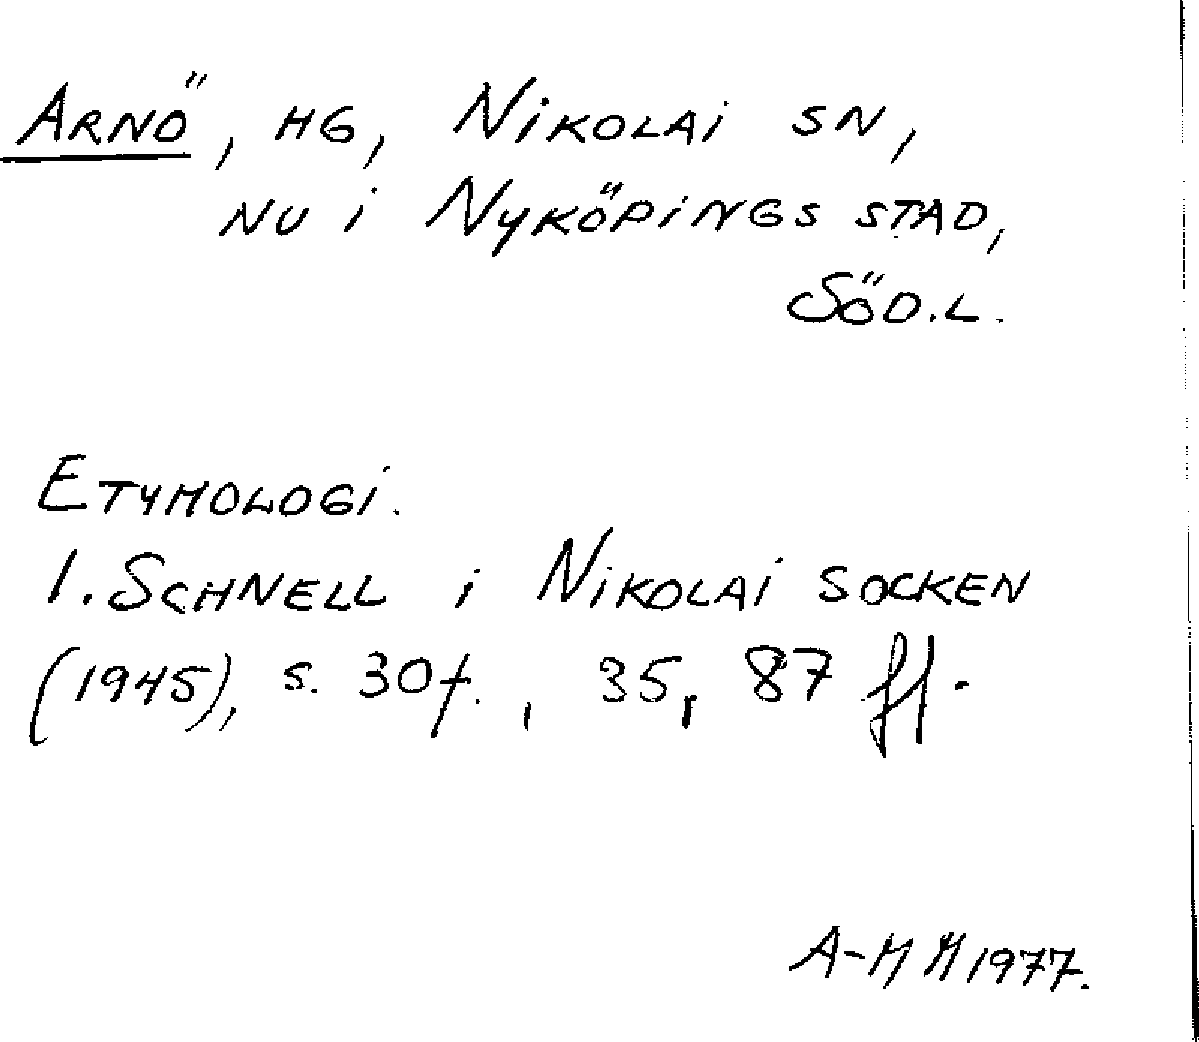 Arnö, hg, Nikolai sn,
nu i Nyköpings stad,
Söd.l.
Etymologi.
I. Schnell i Nikolai socken
(1945), s. 30 f., 35, 87 ff.
A-M M 1977.